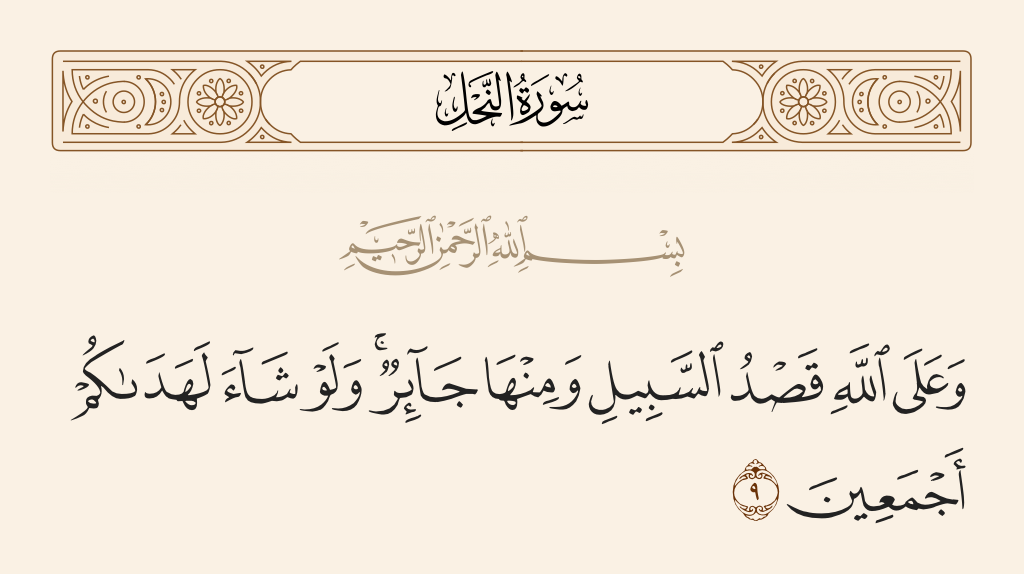 سُورَةُ النَّحْلِ
بِسْمِ ٱللَّهِ ٱلرَّحْمَٰنِ ٱلرَّحِيمِ
وَعَلَى ٱللَّهِ قَصْدُ ٱلسَّبِيلِ وَمِنْهَا جَآئِرٌ ۚ وَلَوْ شَآءَ لَهَدَىٰكُمْ
أَجْمَعِينَ ٩